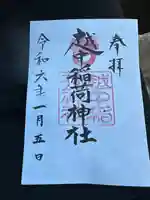 奉拝
越中稲荷神社
令和六年一月五日